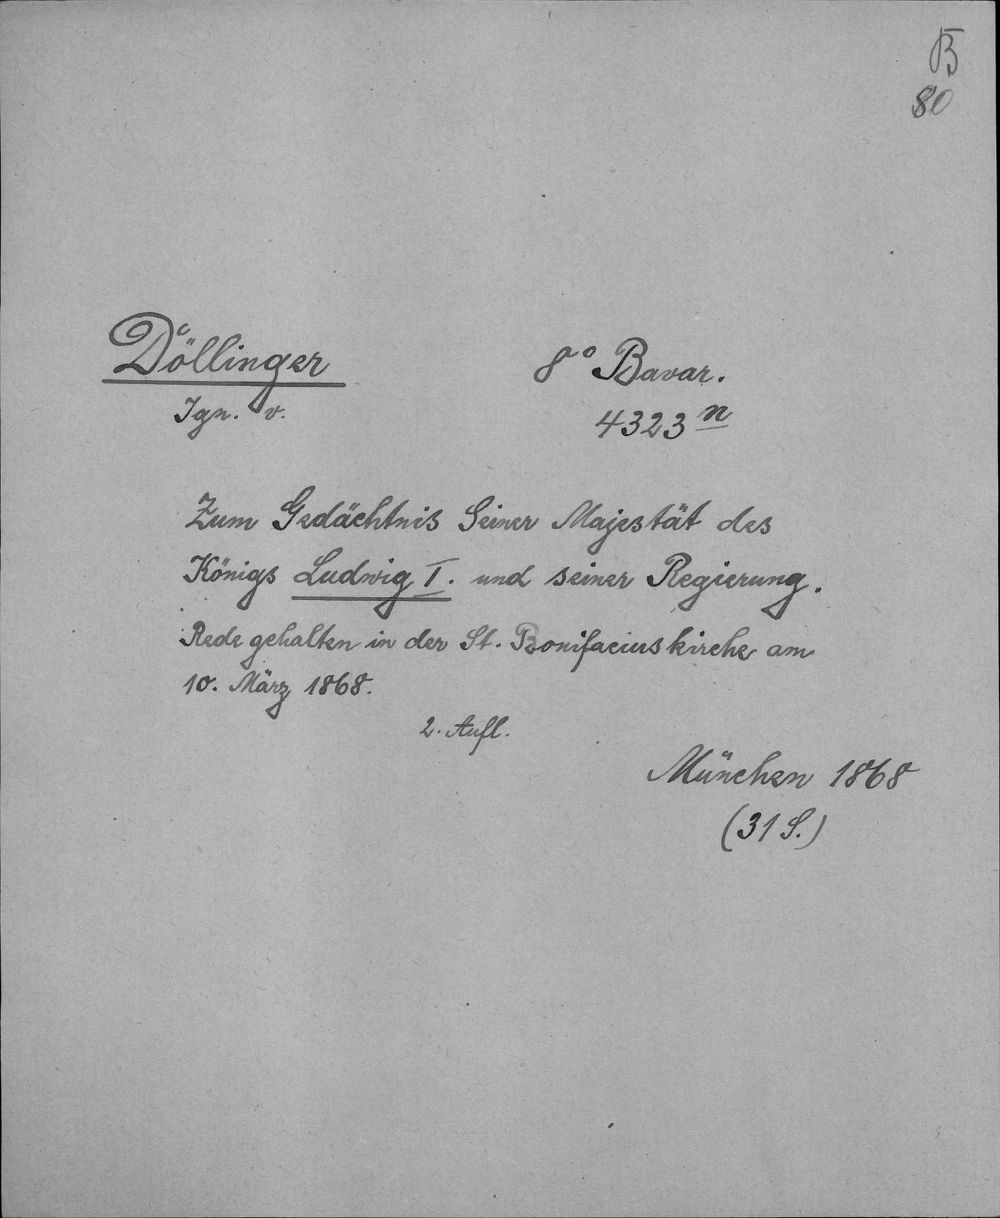 B
80
Döllinger 8° Bavar.
Ign. v. 4323 n
Zum Gedächtnis Seiner Majestät des
Königs Ludwig I. und seiner Regierung.
Rede gehalten in der St. Bonifaciuskirche am
10. März 1868.
2. Aufl.
München 1868
(31 S.)